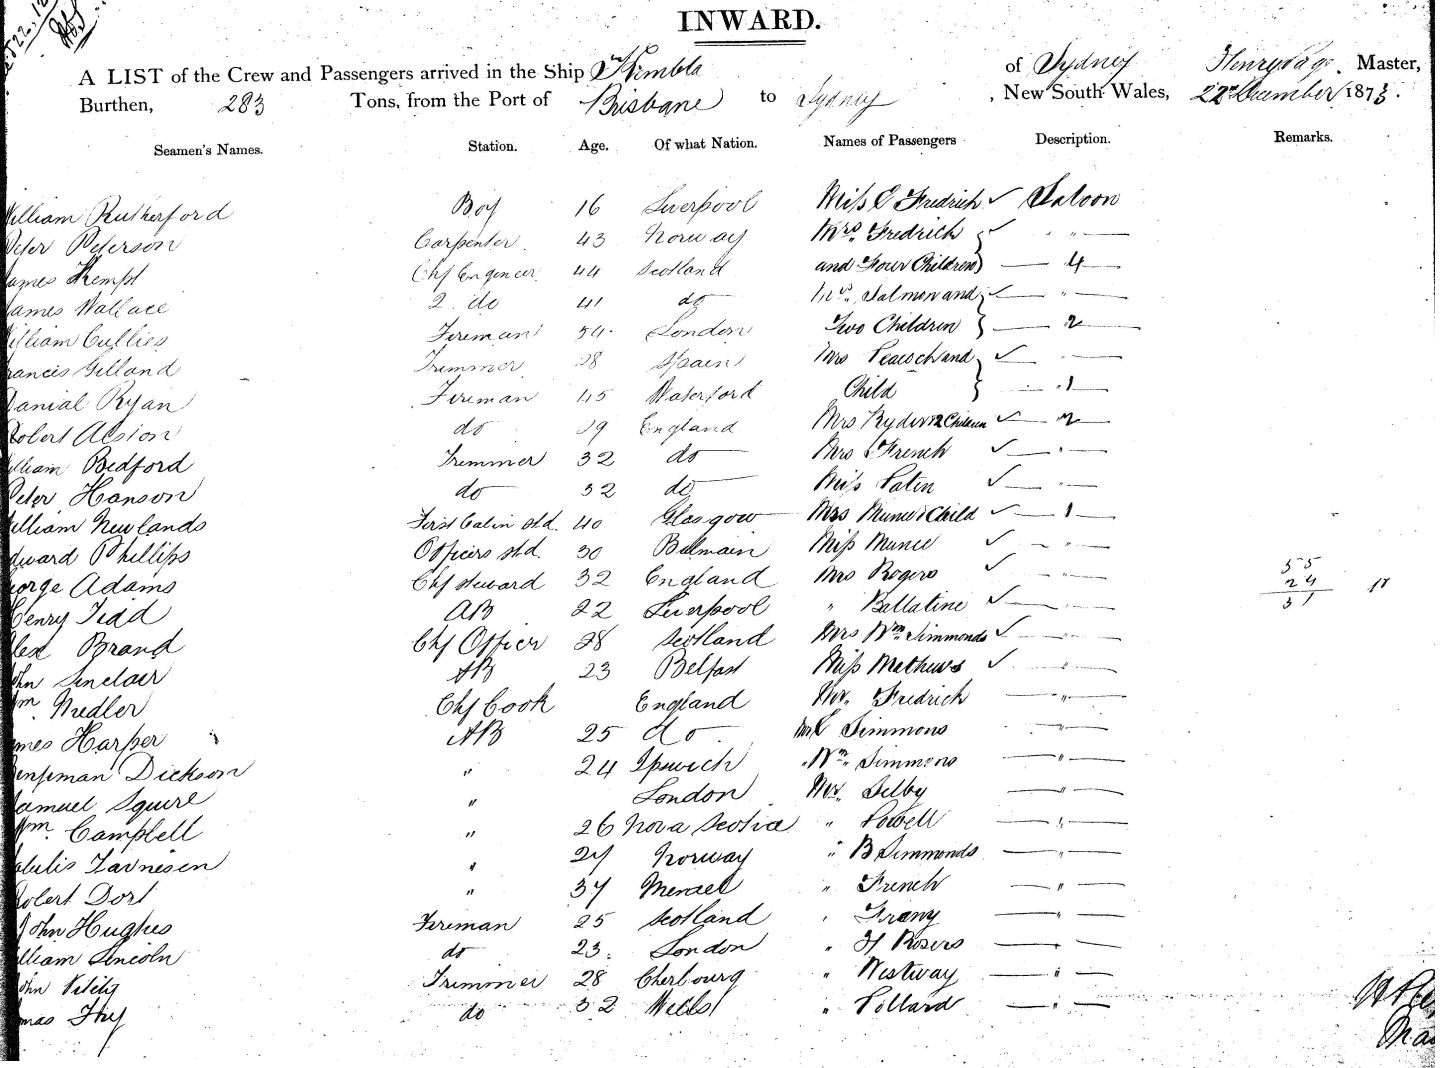 INWARD.
A LIST of the Crew and Passengers arrived in the Ship Kembla of Sydney Henry Page, Master,
Burthen, 283 Tons, from the Port of Brisbane to Sydney, New South Wales, 22nd December 1873.
Seamen's Names. Station. Age. Of what Nation. Names of Passengers Description. Remarks.
William Rutherford Boy 16 Liverpool Miss E Fredrich ✓ Saloon
Peter Peterson Carpenter 43 Norway Mrs. Fredrich ✓ "
James Kempt Chf Engineer 44 Scotland and Four Children 4
James Wallace 2 do 41 do Mrs. Salmon and ✓ "
William Cullies Fireman 54 London Two Children 2
Francis Gilland Trimmer 28 Spain Mrs Peacock and ✓ "
Danial Ryan Fireman 45 Waterford Child 1
Robert Alston do 29 England Mrs Ryder & 2 Children ✓ 2
William Bedford Trimmer 32 do Mrs French ✓ "
Peter Hanson do 32 do Miss Paten ✓ "
William Newlands First Cabin std. 40 Glasgow Mrs Munce & Child ✓ 1
Edward Phillips Officers std. 30 Balmain Miss Munce ✓ "
George Adams Chf Steward 32 England Mrs Rogers ✓ " 55
24
31
Henry Tidd AB 22 Liverpool " Ballatine ✓ "
Alex Brand Chf Officer 28 Scotland Mrs Wm. Simmonds ✓ "
John Sinclair AB 23 Belfast Miss Mathews ✓ "
Wm. Medler Chf Cook England Mr. Fredrich "
James Harper AB 25 do Simmons "
Benjeman Dickson " 24 Ipswich Wm. Simmons "
Samuel Squire " London Mr. Selby "
Wm. Campbell " 26 Nova Scotia " Powell "
Tarnisen " 27 Norway " B Simmonds "
Robert Dort " 37 " French "
John Hughes Fireman 25 Scotland " Grany "
William Lincoln do 23. London " H Rosers "
John Trimmer 28 Cherbourg " Westway "
Thomas Fry do 32 Wells " Pollard "